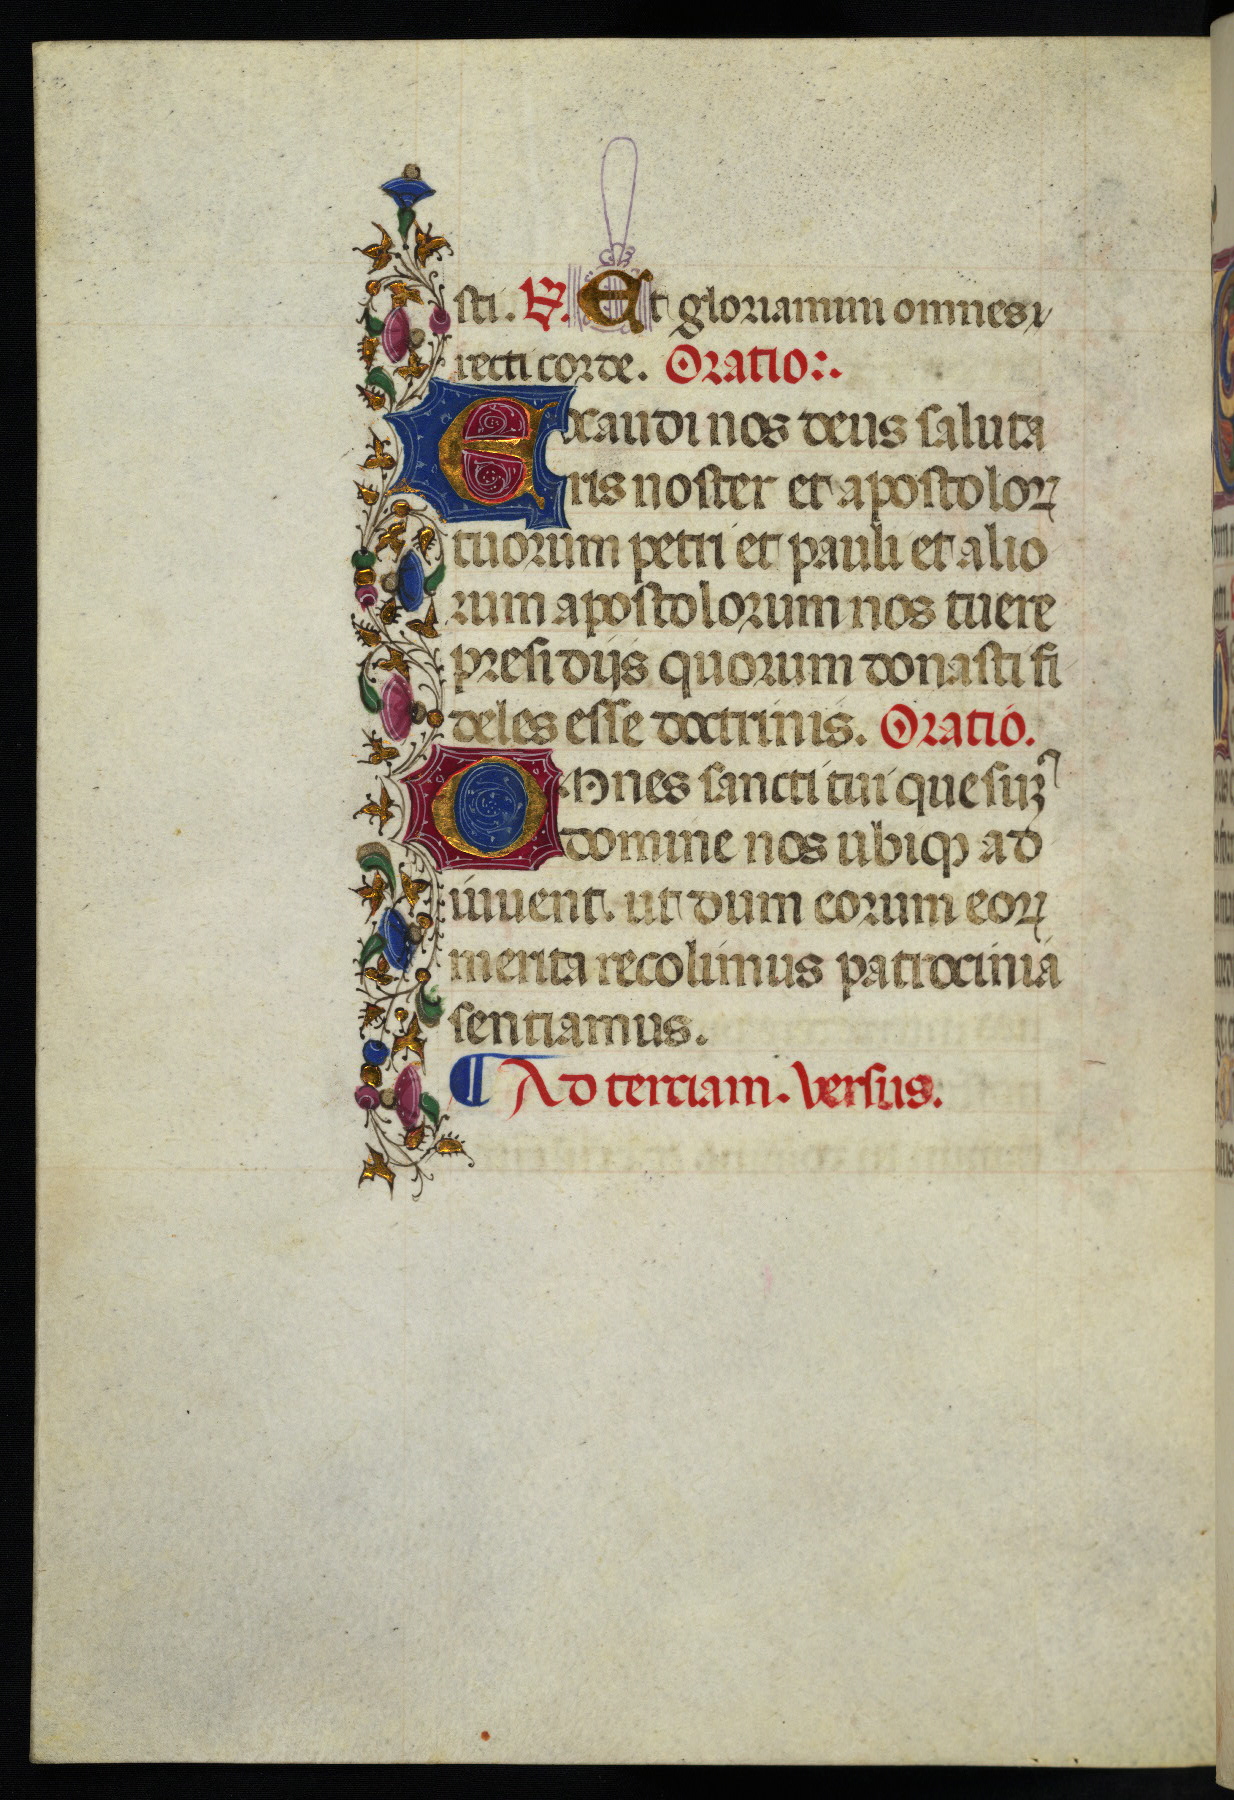 sti. ℟. Et gloriamini omnes
recti corde. Oratio:.
Exaudi nos deus saluta
ris noster et apostoloꝝ
tuorum petri et pauli et alio
rum apostolorum nos tuere
presidijs quorum donasti fi
deles esse doctrinis. Oratio.
Omnes sancti tui quesuꝫ
domine nos ubiqꝫ ad
iuuent. ut dum eorum eoꝝ
merita recolimus patrocinia
sentiamus.
¶ Ad terciam. versus.